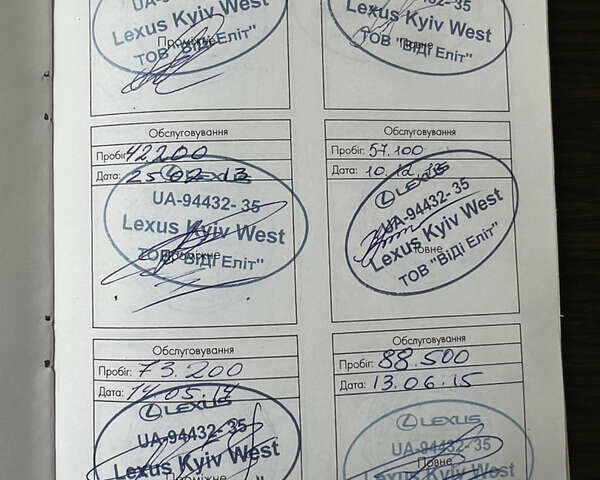 UA-94432-35
Lexus Kyiv West
Проміжне
ТОВ "ВіДі Еліт"
UA-94432-35
Lexus Kyiv West
Повне
ТОВ "ВіДі Еліт"
Обслуговування
Пробіг: 42200
Дата:
LEXUS
UA-94432-35
Lexus Kyiv West
Проміжне
ТОВ "ВіДі Еліт"
Обслуговування
Пробіг: 57.100
Дата: 10.12.13
LEXUS
UA-94432-35
Lexus Kyiv West
Повне
ТОВ "ВіДі Еліт"
Обслуговування
Пробіг: 73.200
Дата: 14.05.14
LEXUS
UA-94432-35
Lexus Kyiv West
Проміжне
Обслуговування
Пробіг: 88.500
Дата: 13.06.15
LEXUS
UA-94432-35
Повне
Lexus Kyiv West